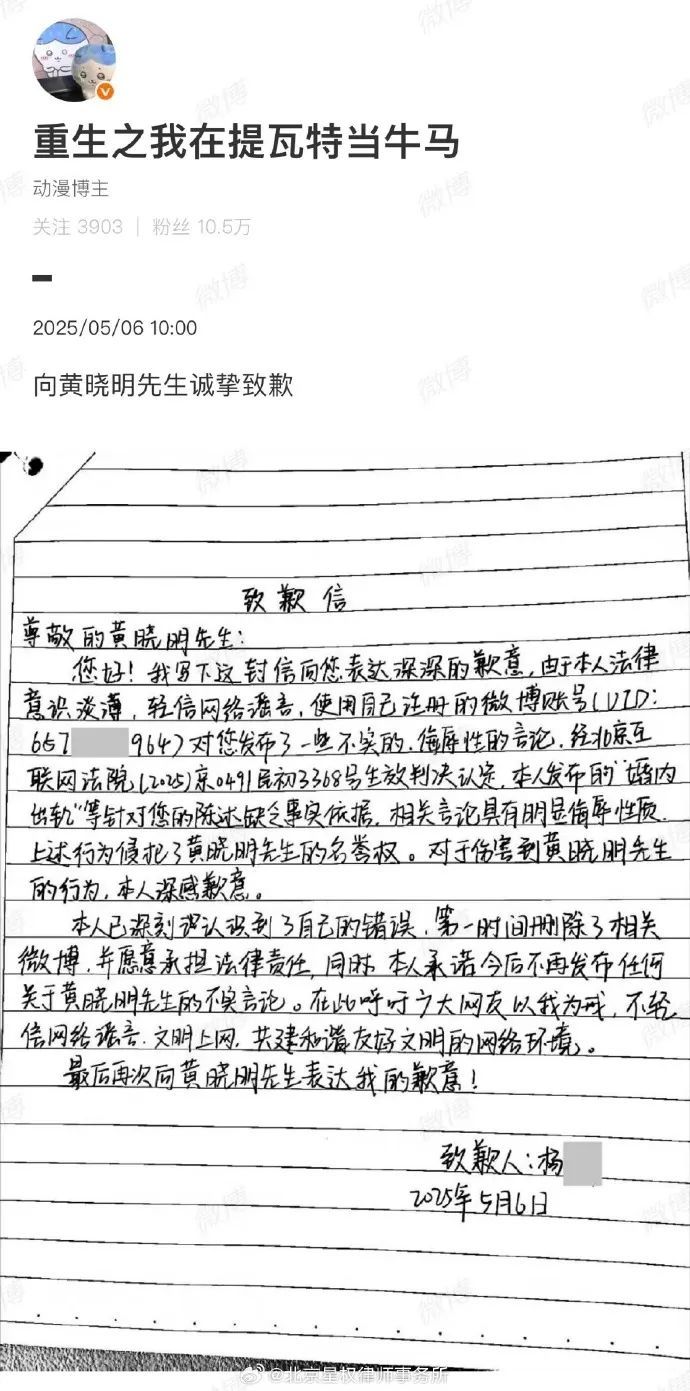 重生之我在提瓦特当牛马
动漫博主
关注 3903 | 粉丝 10.5万
2025/05/06 10:00
向黄晓明先生诚挚致歉
致歉信
尊敬的黄晓明先生:
您好!我写下这封信向您表达深深的歉意,由于本人法律
意识淡薄,轻信网络谣言,使用自己注册的微博账号(UID:
657 964)对您发布了一些不实的、侮辱性的言论,经北京互
联网法院(2025)京0491民初3368号生效判决认定,本人发布的"婚内
出轨"等针对您的陈述缺乏事实依据,相关言论具有明显侮辱性质,
上述行为侵犯了黄晓明先生的名誉权。对于伤害到黄晓明先生
的行为,本人深感歉意。
本人已深刻认识到了自己的错误,第一时间删除了相关
微博,并愿意承担法律责任,同时,本人承诺今后不再发布任何
关于黄晓明先生的不实言论。在此呼吁广大网友以我为戒,不轻
信网络谣言,文明上网,共建和谐友好文明的网络环境。
最后再次向黄晓明先生表达我的歉意!
致歉人:杨
2025年5月6日
@北京星权律师事务所
微博